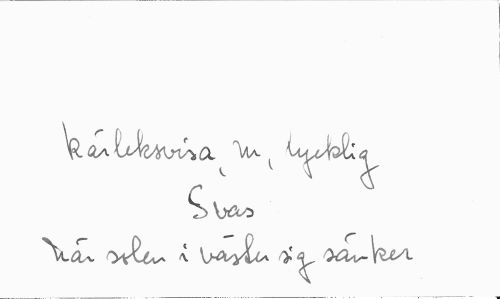 Kärleksvisa, m, lycklig
Svas
När solen i väster sig sänker